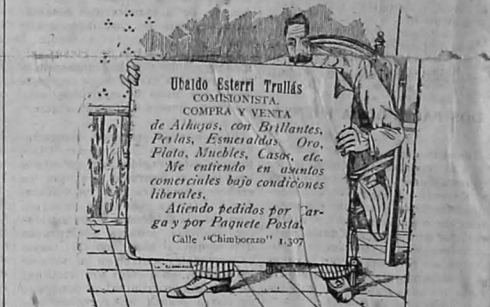 Ubaldo Esterri Trullás
COMISIONISTA.
COMPRA Y VENTA
de Alhajas, con Brillantes,
Perlas, Esmeraldas Oro,
Plata, Muebles, Casas, etc.
Me entiendo en asuntos
comerciales bajo condiciones
liberales.
Atiendo pedidos por Car-
ga y por Paquete Postal.
Calle "Chimborazo" 1.307